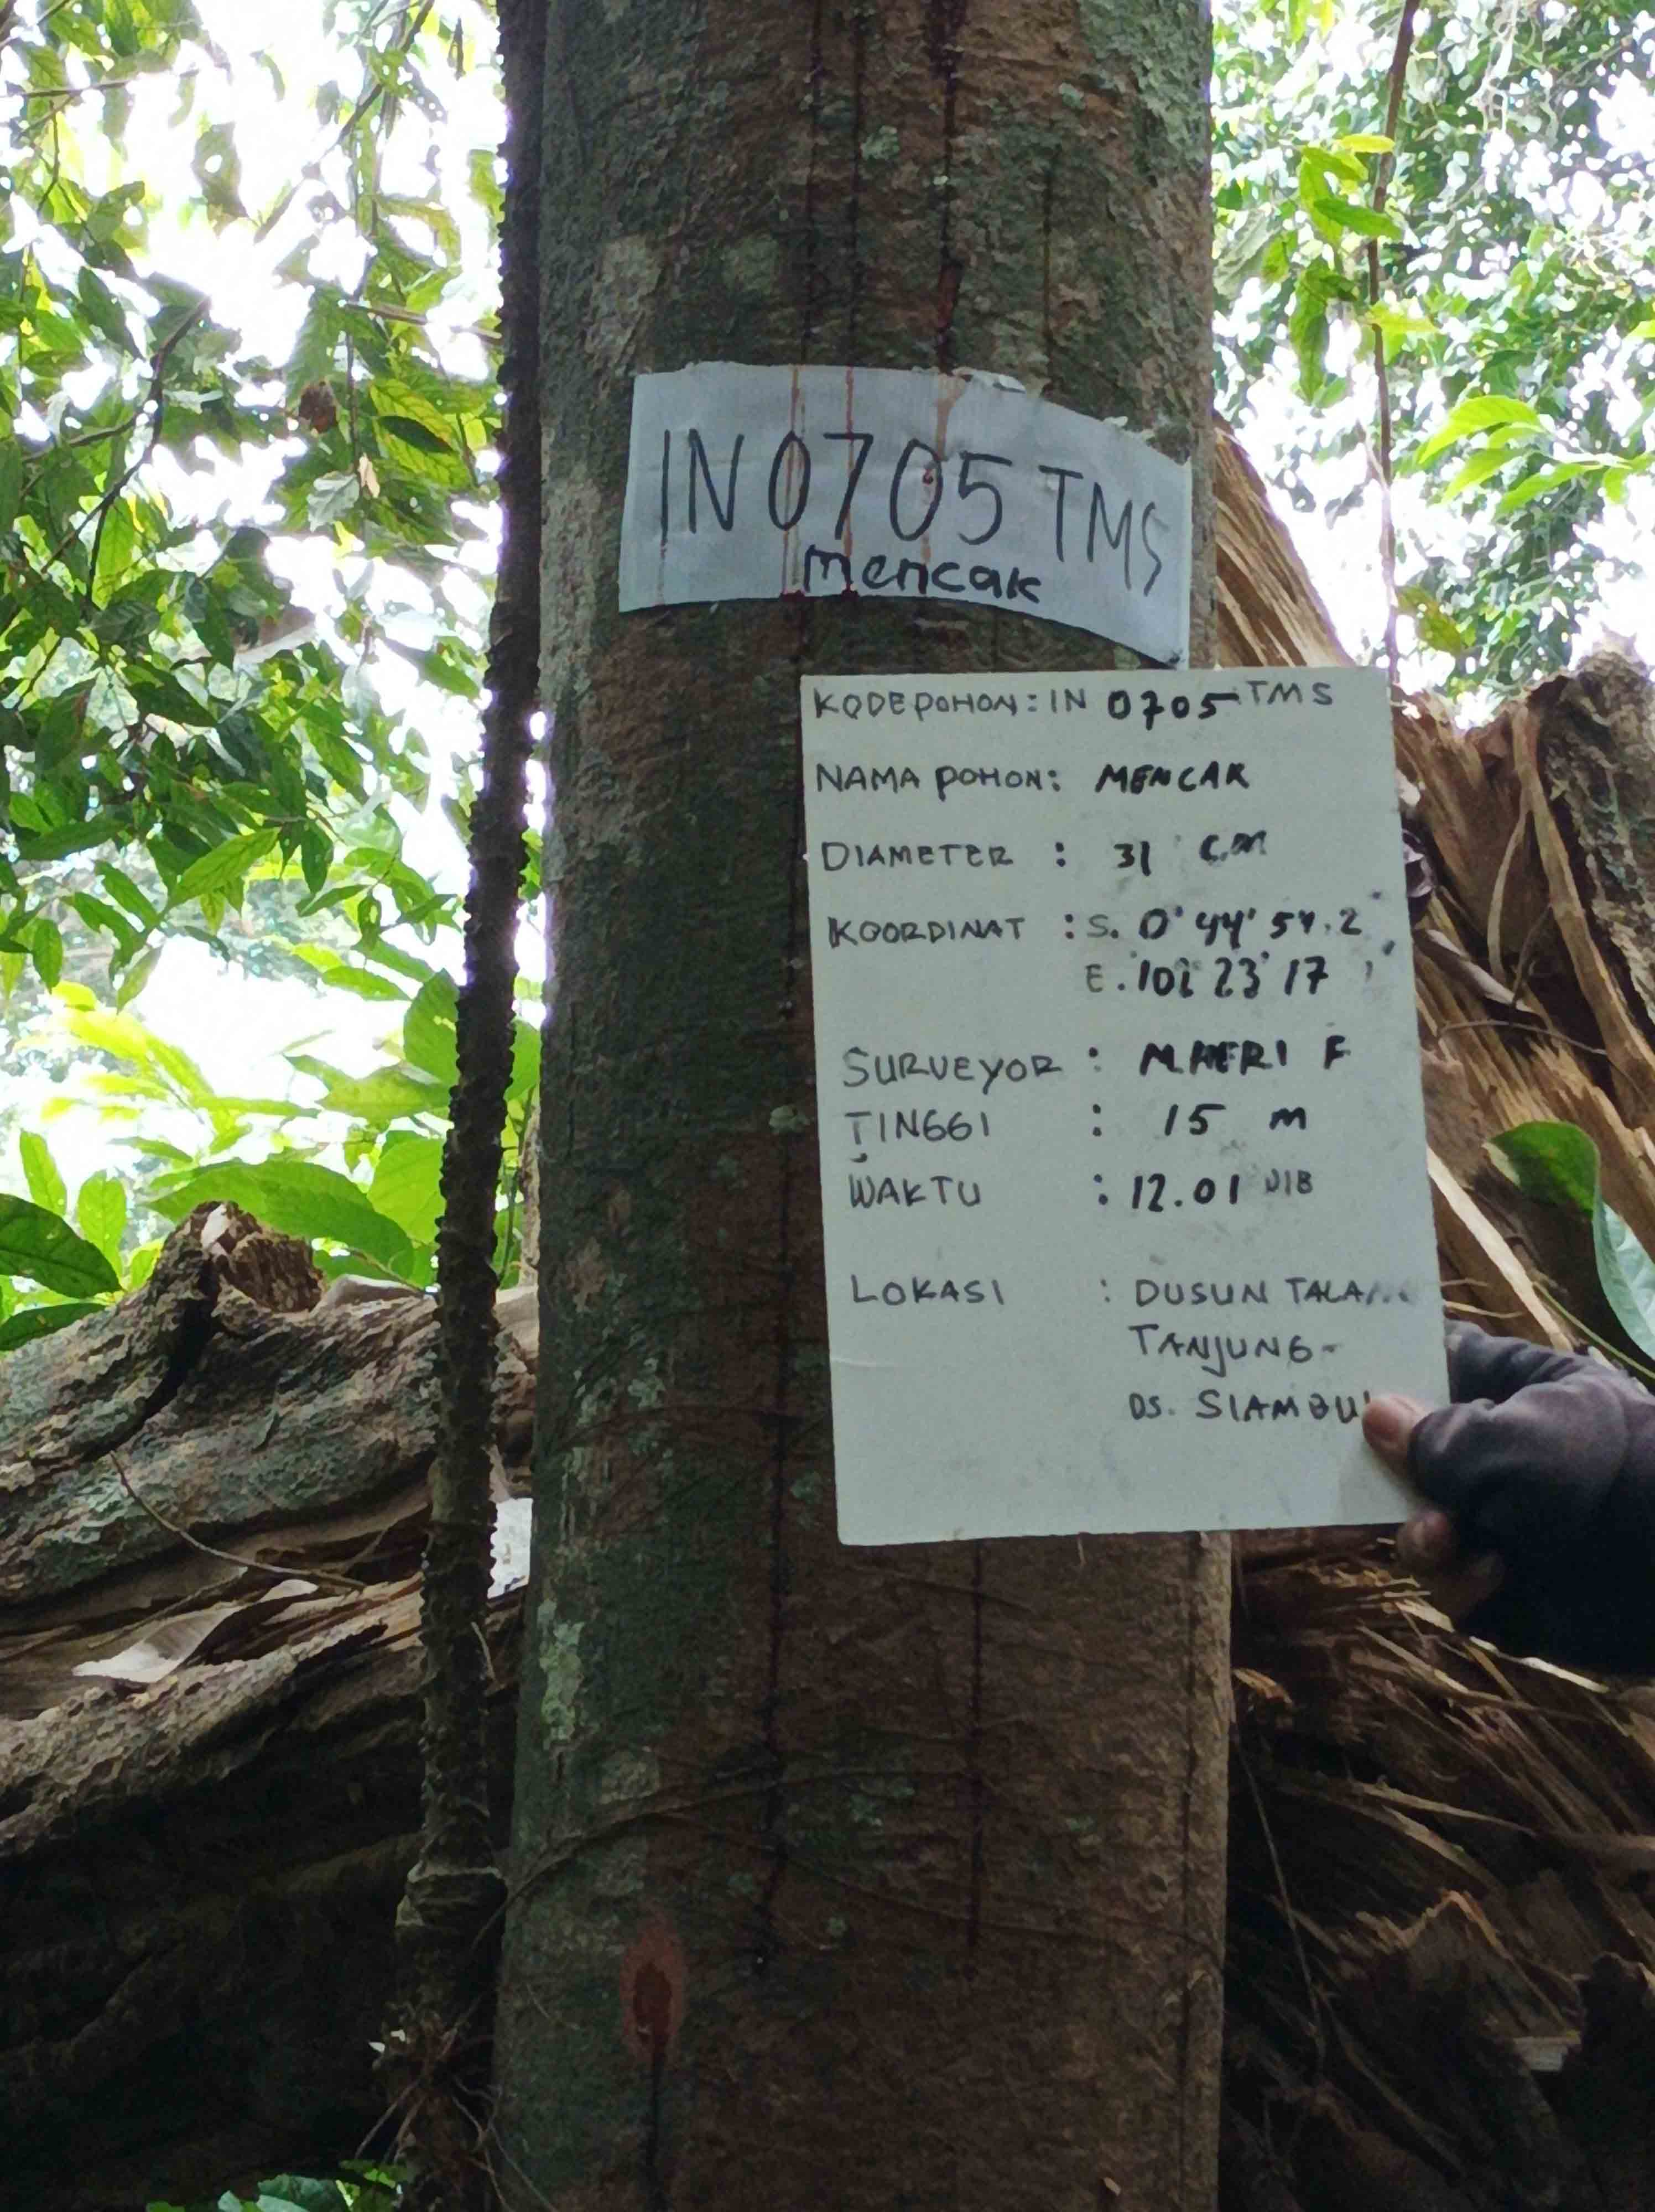 IN0705 TMS
mencak
KODE POHON: IN 0705 TMS
NAMA POHON: MENCAK
DIAMETER : 31 CM
KOORDINAT : S. 0° 44' 54.2
E. 102 23' 17
SURVEYOR : M.HERI F
TINGGI : 15 M
WAKTU : 12.01 WIB
LOKASI : DUSUN
TANJUNG-
DS. SIAMBUL